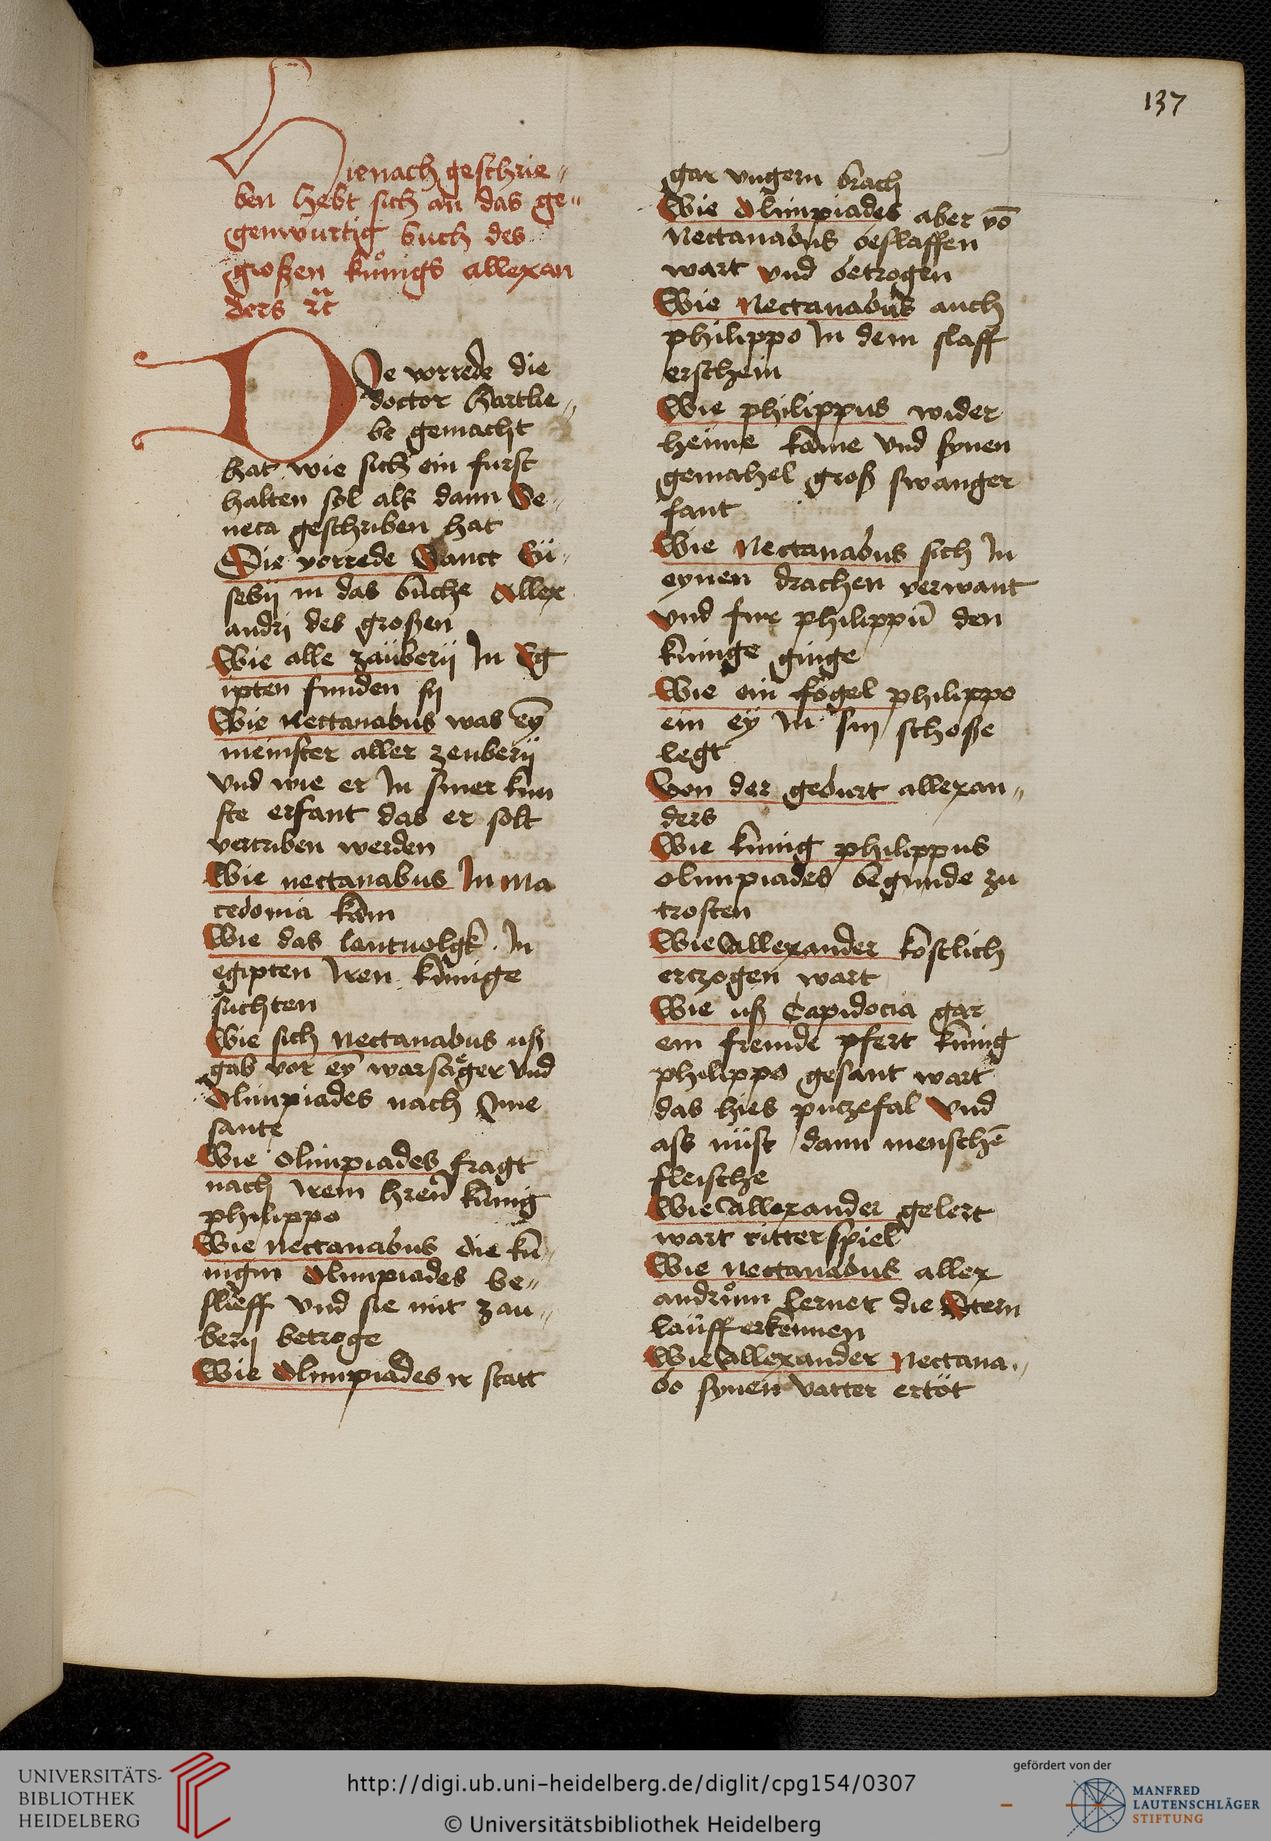 137
Hienach geschrie„
ben hebt sich an das ge„
genwurtig buch des
großen kuͦnigs allexan
ders
De vorrede die
doctor hartlie„
be gemacht
hat wie sich ein furst
halten sol als dann Se„
neca geschriben hat
Die vorrede Sanct Eü„
sebij in das bůche Allex
andrj des großen
Wie alle zaüberij In Eg
ipten funden sij
Wie Nectanabus was eȳ
meinster aller zeuberij
Vnd wie er In siner kün
ste erfant das er solt
vertriben werden
Wie nectanabus In Ma
cedonia kam
Wie das lantuolgk In
egipten Iren künige
suchten
Wie sich Nectanabus uß
gab vor eȳ warsager Vnd
Olimpiades nach Ime
sante
Wie Olimpiades fragt
nach Irem hren künig
philippo
Wie nectanabus die kü„
nigin Olimpiades be„
slieff Vnd sie mit zau„
berij betroge
Wie Olimpiades ir statt
gar vngern brach
Wie Olimpiades aber vō
Nectanabus beslaffen
wart Vnd betrogen
Wie Nectanabus auch
philippo In dem slaff
erschein
Wie philippus wider
heime kame Vnd synen
gemahel groß swanger
fant
Wie Nectanabus sich In
eynen drachen verwant
Vnd fur philippū den
künige ginge
Wie ein fogel philippo
ein ey In sin schoße
legt
Von der geburt allexan„
ders
Wie künig philippus
olimpiades begunde zu
trosten
Wie Allexander kostlich
erczogen wart
Wie uß Capidocia gar
ein fremde pfert künig
philippo gesant wart
das hies puczefal Vnd
ass nüst dann menschē
fleische
Wie Allexander gelert
wart ritterspiel
Wie Nectanabus allex
andruͦm lernet die Stern
lauff erkennen
Wie Allexander Nectana„
bo synen Vatter ertöt
UNIVERSITÄTS-
BIBLIOTHEK
HEIDELBERG
http://digi.ub.uni-heidelberg.de/diglit/cpg154/0307
© Universitätsbibliothek Heidelberg
gefördert von der
MANFRED
LAUTENSCHLÄGER
STIFTUNG